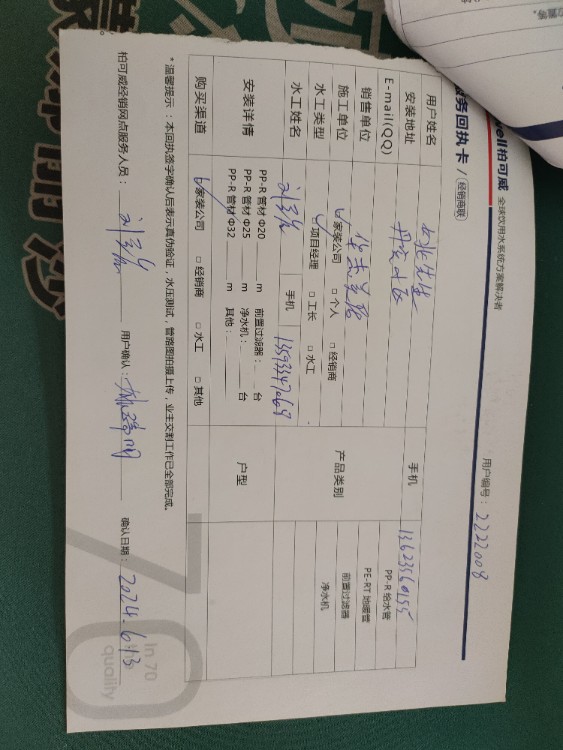 ell柏可威 全球饮用水系统方案解决者
服务回执卡 / 经销商联
用户编号：2222008
用户姓名 先生 手机 13623560155
安装地址
E-mail(QQ)
销售单位
施工单位 ☑家装公司 □个人 □经销商
水工类型 ☑项目经理 □工长 □水工
水工姓名 手机 13593347069
产品类别 PP-R 给水管
PE-RT 地暖管
前置过滤器
净水机
安装详情 PP-R 管材 Φ20 m 前置过滤器： 台
PP-R 管材 Φ25 m 净水机： 台
PP-R 管材 Φ32 m 其他：
户型
购买渠道 ☑家装公司 □经销商 □水工 □其他
*温馨提示：本回执签字确认后表示真伪验证，水压测试，管路图拍摄上传，业主交割工作已全部完成。
柏可威经销网点服务人员： 用户确认： 确认日期：2024.6.13
70
In 70
quality